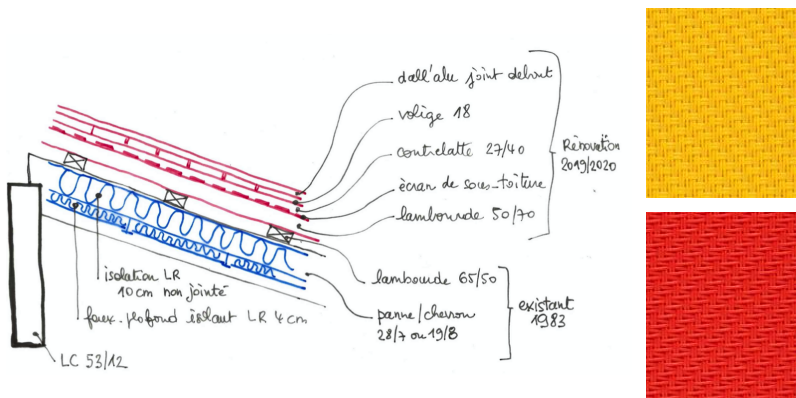 dall'alu joint debout
volige 18
contrelatte 27/40
écran de sous-toiture
lambourde 50/70
Rénovation
2019/2020
lambourde 65/50
panne/chevron
28/7 ou 19/8
existant
1983
isolation LR
10 cm non jointé
faux-plafond isolant LR 4 cm
LC 53/12